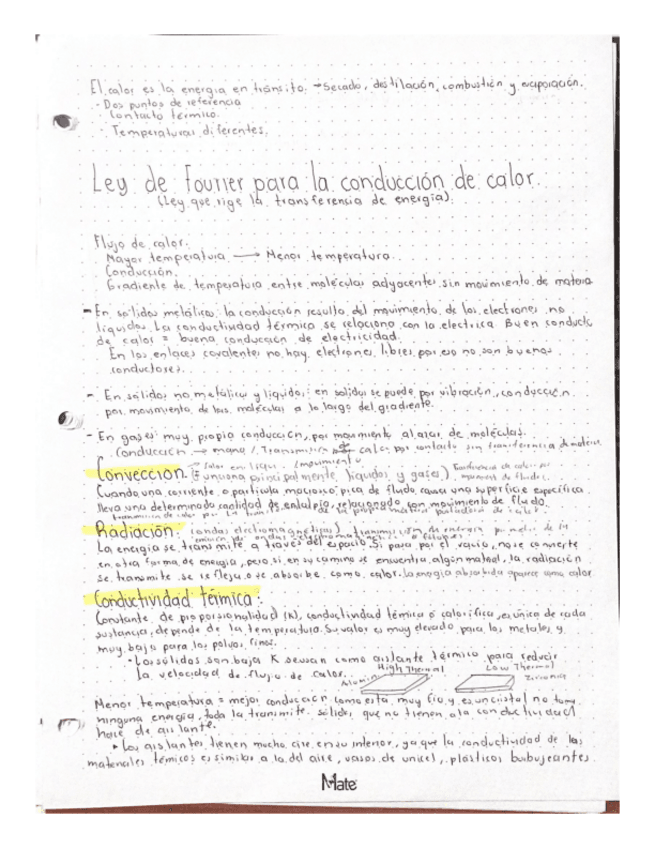 El calor es la energía en tránsito. → Secado, destilación, combustión y evaporación.
- Dos puntos de referencia
- Contacto térmico.
- Temperaturas diferentes.
Ley de Fourier para la conducción de calor.
(Ley que rige la transferencia de energía).
Flujo de calor.
Mayor temperatura → Menor temperatura.
Conducción.
Gradiente de temperatura entre moléculas adyacentes, sin movimiento de materia
- En sólidos metálicos: la conducción resulta del movimiento de los electrones, no
líquidos. La conductividad térmica se relaciona con la electrica. Buen conducto
de calor = buena conducción de electricidad.
En los enlaces covalentes no hay electrones libres, por eso no son buenos
conductores.
- En sólidos no metálicos y líquidos: en sólidos se puede por vibración, conducción
por movimiento de las moléculas a lo largo del gradiente.
- En gases: muy propia conducción, por movimiento al azar de moléculas.
Conducción → calor por contacto sin transferencia de materia
Convección. (Funciona principalmente, líquidos y gases).
Transferencia de calor por
movimiento de fluidos.
Cuando una corriente o partícula macroscópica de fluido cruza una superficie específica
lleva una determinada cantidad de entalpía, relacionado con movimiento de fluido.
Radiación: (ondas electromagnéticas), transmisión de energía por medio de la
La energía se transmite a través del espacio. Si pasa por el vacío, no se convierte
en otra forma de energía, pero si en su camino se encuentra algún material, la radiación
se transmite, se refleja o se absorbe como calor. La energía absorbida aparece como calor
Conductividad térmica:
Constante de proporsionalidad (K), conductividad térmica o calorífica, es única de cada
sustancia, depende de la temperatura. Su valor es muy elevado para los metales y
muy bajo para los polvos finos.
- Los sólidos son baja K se usan como aislante térmico para reducir
la velocidad de flujo de calor.
High Thermal
Low Thermal
Aluminio
Menor temperatura = mejor conducción como está muy frío y es un cristal no toma
ninguna energía, toda la transmite. Sólidos que no tienen alta conductividad
hace de aislante.
▸ Los aislantes tienen mucho aire en su interior, ya que la conductividad de los
materiales térmicos es similar a la del aire, vasos de unicel, plásticos burbujeantes.
Mate